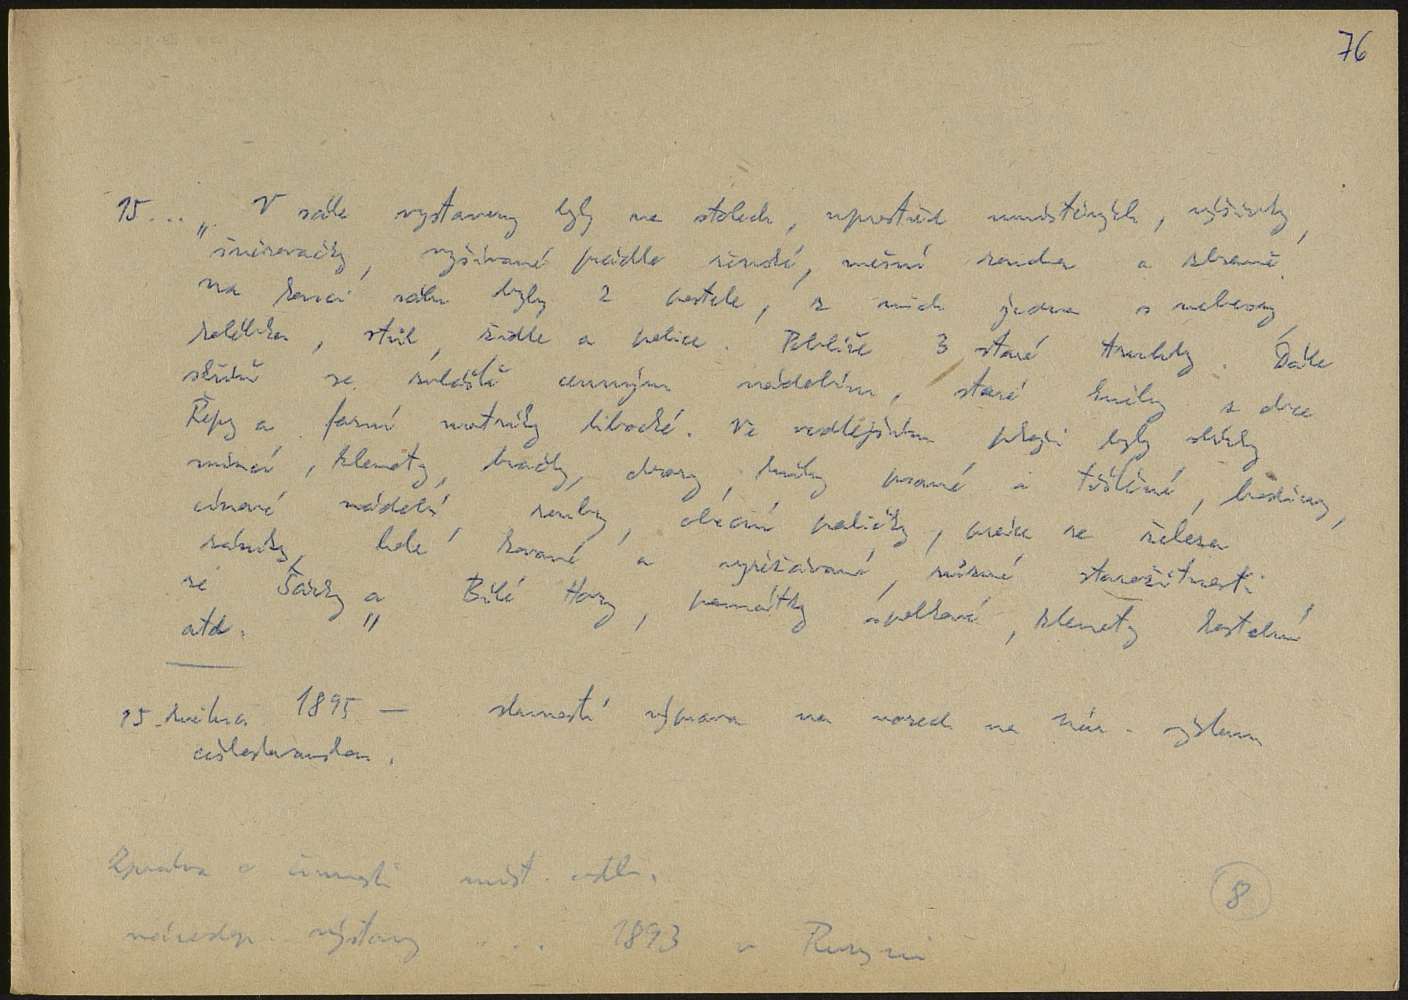 76
15... „V sále vystaveny byly na stolech, uprostřed umístěných, výšivky,
šněrovačky, vyšívané prádlo ženské, mešní roucha a zbraně.
na konci sálu byly 2 postele, z nich jedna s nebesy,
kolébka, stůl, židle a police. Poblíže 3 staré truhly. Dále
skříně se zvláště cenným nádobím, staré knihy z obce
Řepy a farní matriky libocké. Ve vedlejším pokoji byly sbírky
mincí, klenoty, hračky, obrazy, knihy psané a tištěné, hodiny,
cínové nádobí, obecní paličky, práce ze železa
kované a vyřezávané, různé starožitnosti
ze Šárky a Bílé Hory, památky spolkové, klenoty kostelní
atd."
15. května 1895 — slavnostní výprava na vozech na Nár. výstavu
českoslovanskou.
Zpráva o činnosti míst. odb.
národop. výstavy ... 1893 v Ruzyni
8